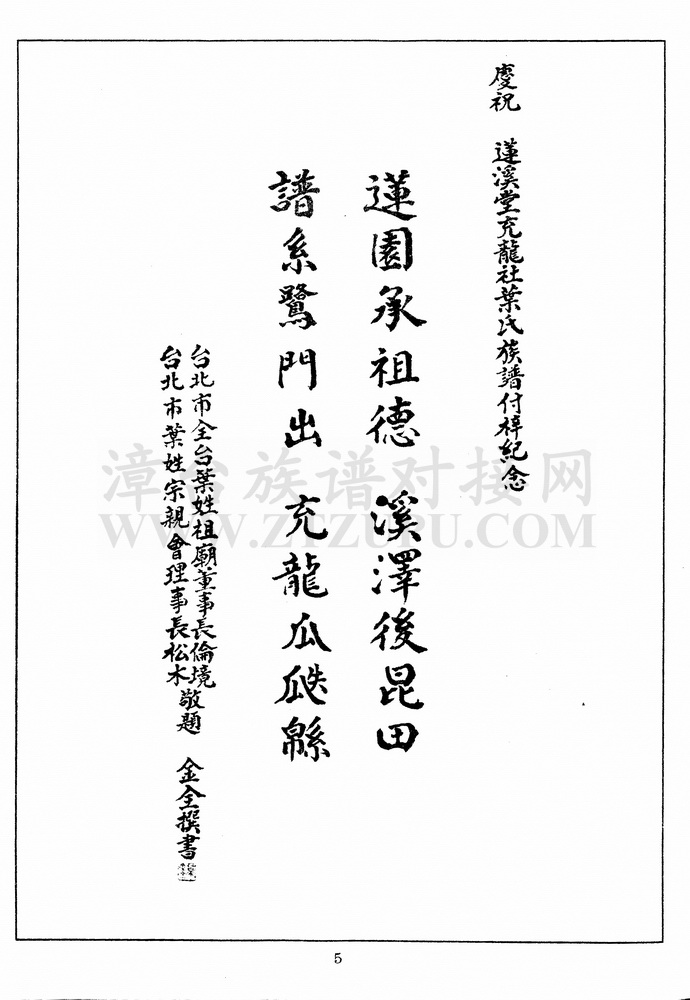 慶祝 蓮溪堂充龍社葉氏族譜付梓紀念
蓮園承祖德 溪澤後昆田
譜系鷺門出 充龍瓜瓞緜
台北市全台葉姓祖廟董事長倫境
台北市葉姓宗親會理事長松木
敬題 金全撰書
漳台族谱对接网
WWW.ZTZUPU.COM
5